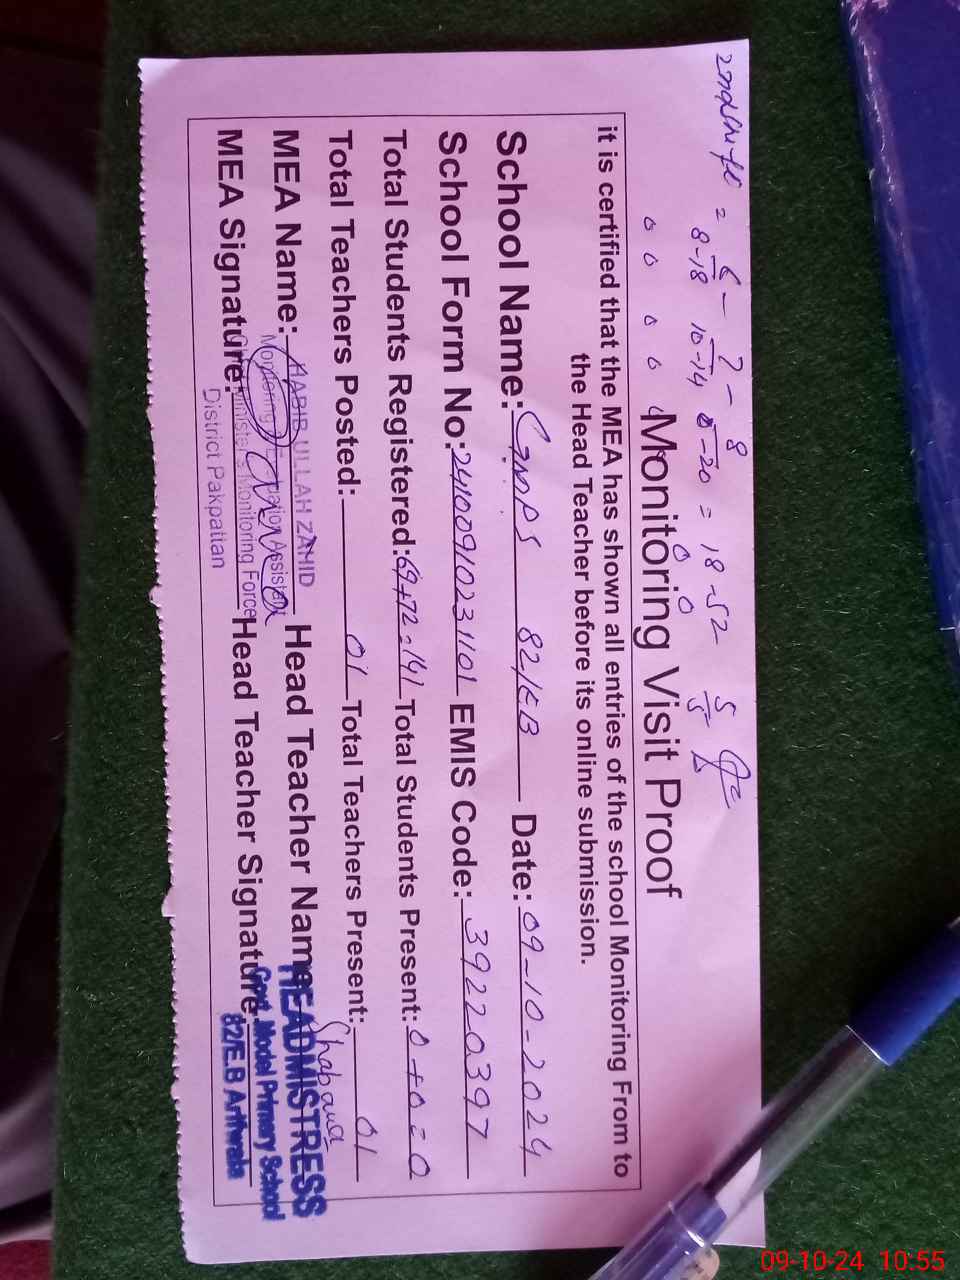 = 6 - 7 - 8
8-18 10-14 8-20 = 18-52 5/5
0 0 0 0 0 0
Monitoring Visit Proof
it is certified that the MEA has shown all entries of the school Monitoring From to
the Head Teacher before its online submission.
School Name: GMPS 82/EB Date: 09-10-2024
School Form No: 24100910231101 EMIS Code: 39220397
Total Students Registered: 69+72=141 Total Students Present: 0+0=0
Total Teachers Posted: 01 Total Teachers Present: 01
MEA Name: HABIB ULLAH ZAHID Head Teacher Name Shabana
Monitoring Assistant HEADMISTRESS
MEA Signature: Minister's Monitoring Force Head Teacher Signature
District Pakpattan
Govt. Model Primary School
82/E.B Arifwala
09-10-24 10:55